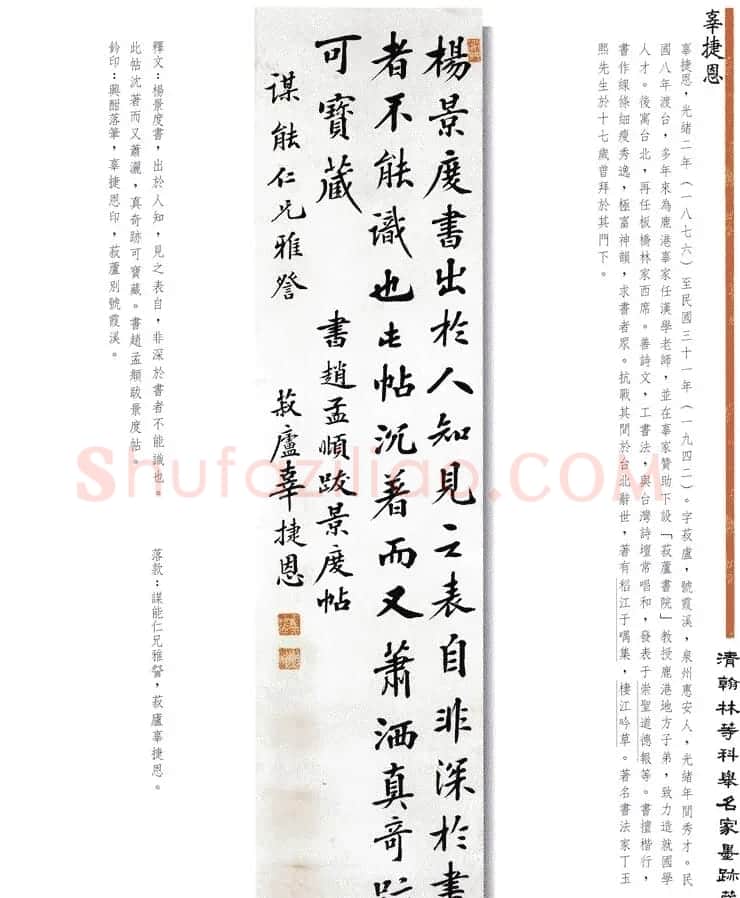 清翰林等科舉名家墨跡
辜捷恩
辜捷恩，光緒二年（一八七六）至民國三十一年（一九四二）。字菽盧，號霞溪，泉州惠安人，光緒年間秀才。民
國八年渡台，多年來為鹿港辜家任漢學老師，並在辜家贊助下設「菽蘆書院」教授鹿港地方子弟，致力造就國學
人才。後寓台北，再任板橋林家西席。善詩文，工書法，與台灣詩壇常唱和，發表于崇聖道德報等。書擅楷行，
書作線條細瘦秀逸，極富神韻，求書者眾。抗戰其間於台北辭世，著有稻江于喁集，棲江吟草。著名書法家丁玉
熙先生於十七歲曾拜於其門下。
楊景度書出於人知見之表自非深於書
者不能識也此帖沉著而又蕭洒真奇跡
可寶藏 書趙孟頫跋景度帖
謀能仁兄雅詧 菽廬辜捷恩
釋文：楊景度書，出於人知，見之表自，非深於書者不能識也。
此帖沈著而又蕭灑，真奇跡可寶藏。書趙孟頫跋景度帖。
鈐印：興酣落筆，辜捷恩印，菽蘆別號霞溪。
落款：謀能仁兄雅詧，菽廬辜捷恩。
Shufaziliao.COM